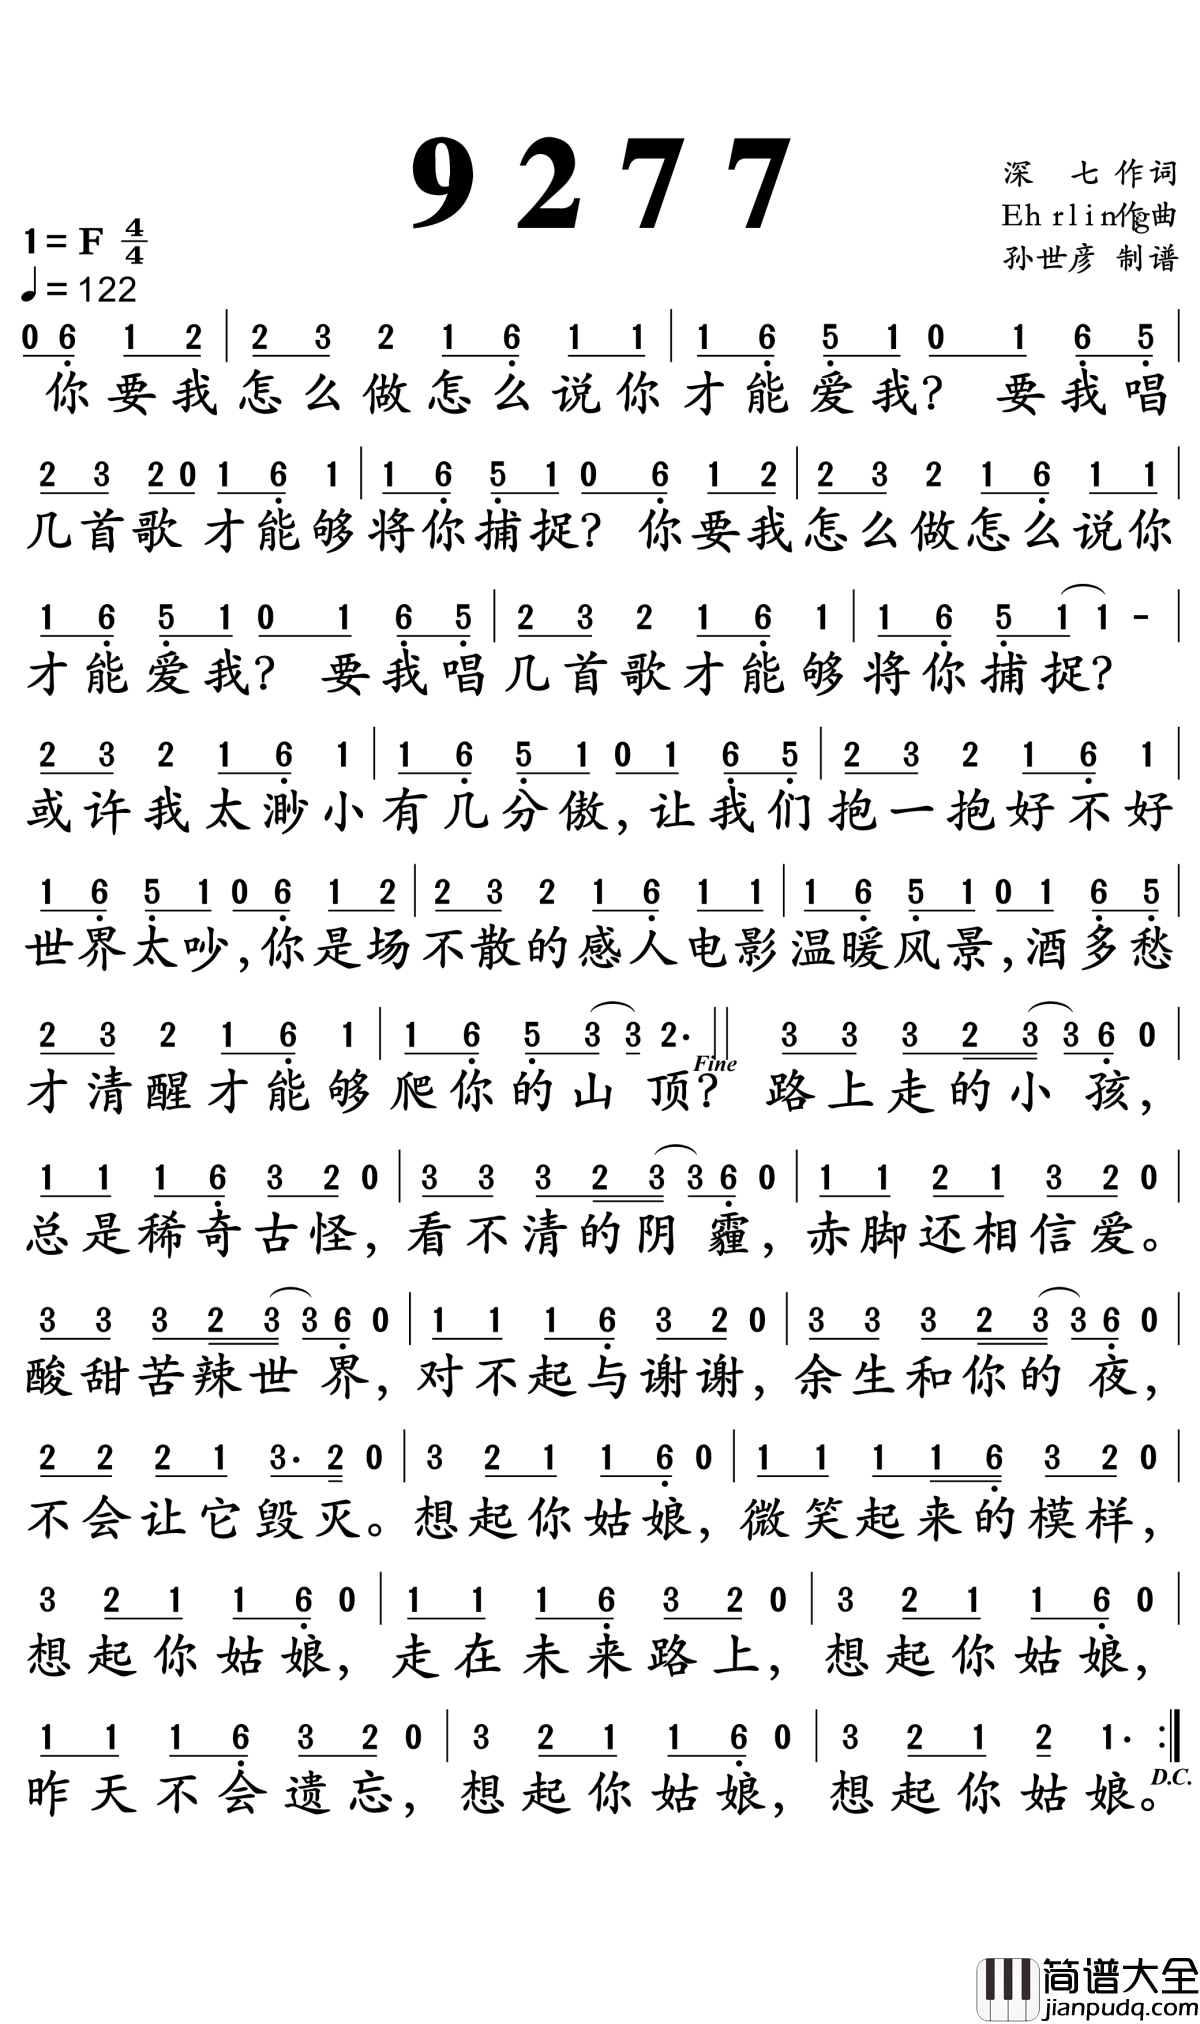 9277
深 七 作词
Ehrling作曲
孙世彦 制谱
1=F 4/4
♩=122
0 6 1 2 | 2 3 2 1 6 1 1 | 1 6 5 1 0 1 6 5 |
你要我怎么做怎么说你才能爱我? 要我唱
2 3 2 0 1 6 1 | 1 6 5 1 0 6 1 2 | 2 3 2 1 6 1 1 |
几首歌 才能够将你捕捉? 你要我怎么做怎么说你
1 6 5 1 0 1 6 5 | 2 3 2 1 6 1 | 1 6 5 1 1 - |
才能爱我? 要我唱几首歌才能够将你捕捉?
2 3 2 1 6 1 | 1 6 5 1 0 1 6 5 | 2 3 2 1 6 1 |
或许我太渺小有几分傲,让我们抱一抱好不好
1 6 5 1 0 6 1 2 | 2 3 2 1 6 1 1 | 1 6 5 1 0 1 6 5 |
世界太吵,你是场不散的感人电影温暖风景,酒多愁
2 3 2 1 6 1 | 1 6 5 3 3 2· || 3 3 3 2 3 3 6 0 |
Fine
才清醒才能够爬你的山 顶? 路上走的小 孩,
1 1 1 6 3 2 0 | 3 3 3 2 3 3 6 0 | 1 1 2 1 3 2 0 |
总是稀奇古怪,看不清的阴 霾,赤脚还相信爱。
3 3 3 2 3 3 6 0 | 1 1 1 6 3 2 0 | 3 3 3 2 3 3 6 0 |
酸甜苦辣世 界,对不起与谢谢,余生和你的 夜,
2 2 2 1 3· 2 0 | 3 2 1 1 6 0 | 1 1 1 1 6 3 2 0 |
不会让它毁灭。想起你姑娘,微笑起来的模样,
3 2 1 1 6 0 | 1 1 1 6 3 2 0 | 3 2 1 1 6 0 |
想起你姑娘,走在未来路上,想起你姑娘,
1 1 1 6 3 2 0 | 3 2 1 1 6 0 | 3 2 1 2 1· :|
D.C.
昨天不会遗忘,想起你姑娘,想起你姑娘。
简谱大全
jianpudq.com